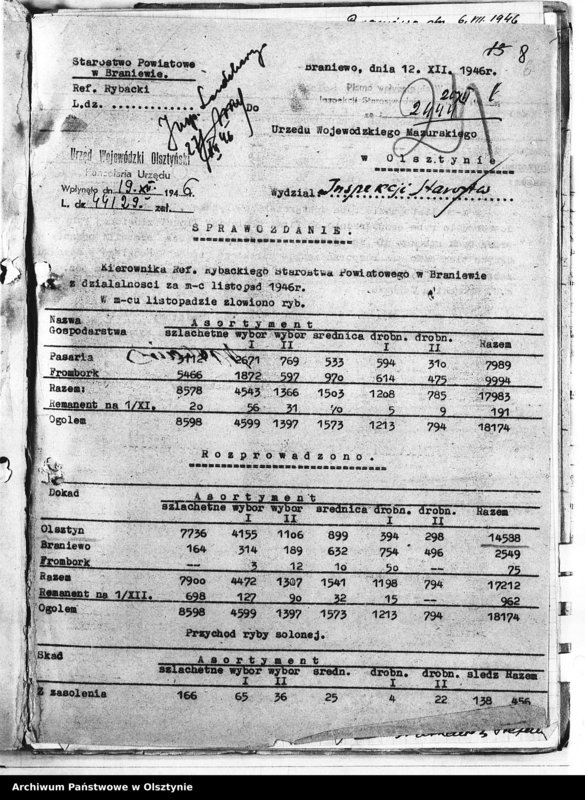 6.XII.1946
15 8
Starostwo Powiatowe
w Braniewie.
Ref. Rybacki
L.dz. ...........
Braniewo, dnia 12. XII. 1946r.
Do
Urzedu Wojewódzkiego Mazurskiego
w Olsztynie
Wydział Inspekcji Starostw
Urząd Wojewódzki Olsztyński
Kancelaria Urzędu
Wpłynęło dn 19.XII. 1946.
L. dz 44129 zał.
SPRAWOZDANIE.
Kierownika Ref. Rybackiego Starostwa Powiatowego w Braniewie
z dzialalnosci za m-c listopad 1946r.
W m-cu listopadzie zlowiono ryb.
Nazwa Gospodarstwa Asortyment
szlachetne wybor wybor srednica drobn. drobn. Razem
I II I II
Pasaria 2671 769 533 594 310 7989
Frombork 5466 1872 597 970 614 475 9994
Razem: 8578 4543 1366 1503 1208 785 17983
Remanent na 1/XI. 20 56 31 70 5 9 191
Ogolem 8598 4599 1397 1573 1213 794 18174
Rozprowadzono.
Dokad Asortyment
szlachetne wybor wybor srednica drobn. drobn. Razem
I II I II
Olsztyn 7736 4155 1106 899 394 298 14588
Braniewo 164 314 189 632 754 496 2549
Frombork -- 3 12 10 50 -- 75
Razem 7900 4472 1307 1541 1198 794 17212
Remanent na 1/XII. 698 127 90 32 15 -- 962
Ogolem 8598 4599 1397 1573 1213 794 18174
Przychod ryby solonej.
Skad Asortyment
szlachetne wybor wybor sredn. drobn. drobn. sledz Razem
I II I II
Z zasolenia 166 65 36 25 4 22 138 456
Archiwum Państwowe w Olsztynie